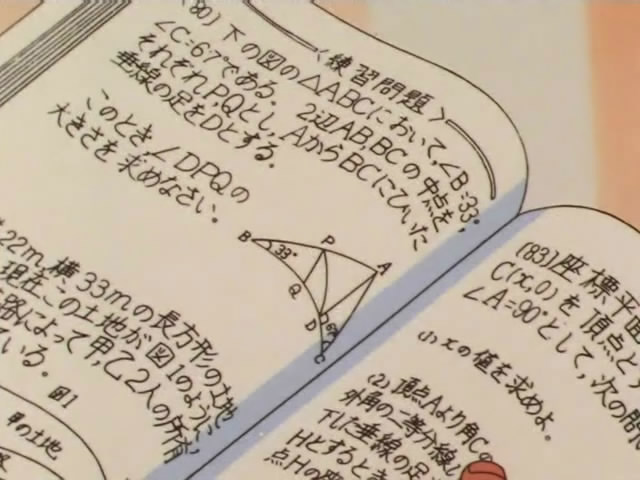 〈練習問題〉
(80) 下の図の△ABCにおいて,∠B=33°
∠C=67°である。2辺AB,BCの中点を,
それぞれ,P,Qとし,AからBCにひいた
垂線の足をDとする。
このとき,∠DPQの
大きさを求めなさい。
B
33°
P
A
Q
D
67°
C
22m 横33mの長方形の土地
現在この土地が図1のように
路によって甲,乙2人の所有
ている。
図1
甲の土地
(83) 座標平面
C(x,0)を頂点と
∠A=90°として,次の問
(1) xの値を求めよ。
(2) 頂点Aより角Cの
外角の二等分線
下した垂線の足
Hとするとき
点Hの